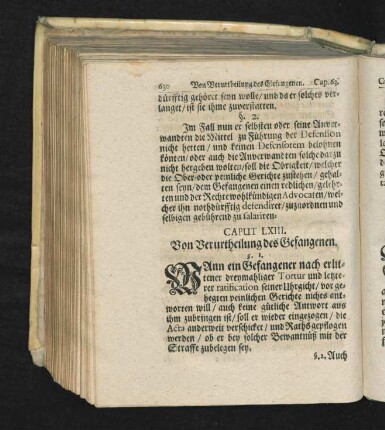 630 Von Verurtheilung des Gefangenen. Cap. 63.
dürfftig gehöret seyn wolle/ und da er solches ver-
langet/ ist sie ihme zuverstatten.
§. 2.
Im Fall nun er selbsten oder seine Anver-
wandten die Mittel zu Führung der Defension
nicht hetten/ und keinen Defensorem belohnen
könten/ oder auch die Anverwandten solche darzu
nicht hergeben wolten/ soll die Obrigkeit/ welcher
die Ober- oder peinliche Gerichte zustehen/ gehal-
ten seyn/ dem Gefangenen einen redlichen/ gelehr-
ten und der Rechte wohlkündigen Advocaten/ wel-
cher ihn nothdürfftig defendirer/ zuzuordnen und
selbigen gebührend zu salariren.
CAPUT LXIII.
Von Verurtheilung des Gefangenen.
§. 1.
WAnn ein Gefangener nach erlit-
tener dreymahliger Tortur und letzte-
rer ratification seiner Uhrgicht/ vor ge-
hegten peinlichen Gerichte nichts ant-
worten will/ auch keine gütliche Antwort aus
ihm zubringen ist/ soll er wieder eingezogen/ die
Acta anderweit verschicket/ und Raths gepflogen
werden/ ob er bey solcher Bewantnüß mit der
Straffe zubelegen sey.
§. 2. Auch